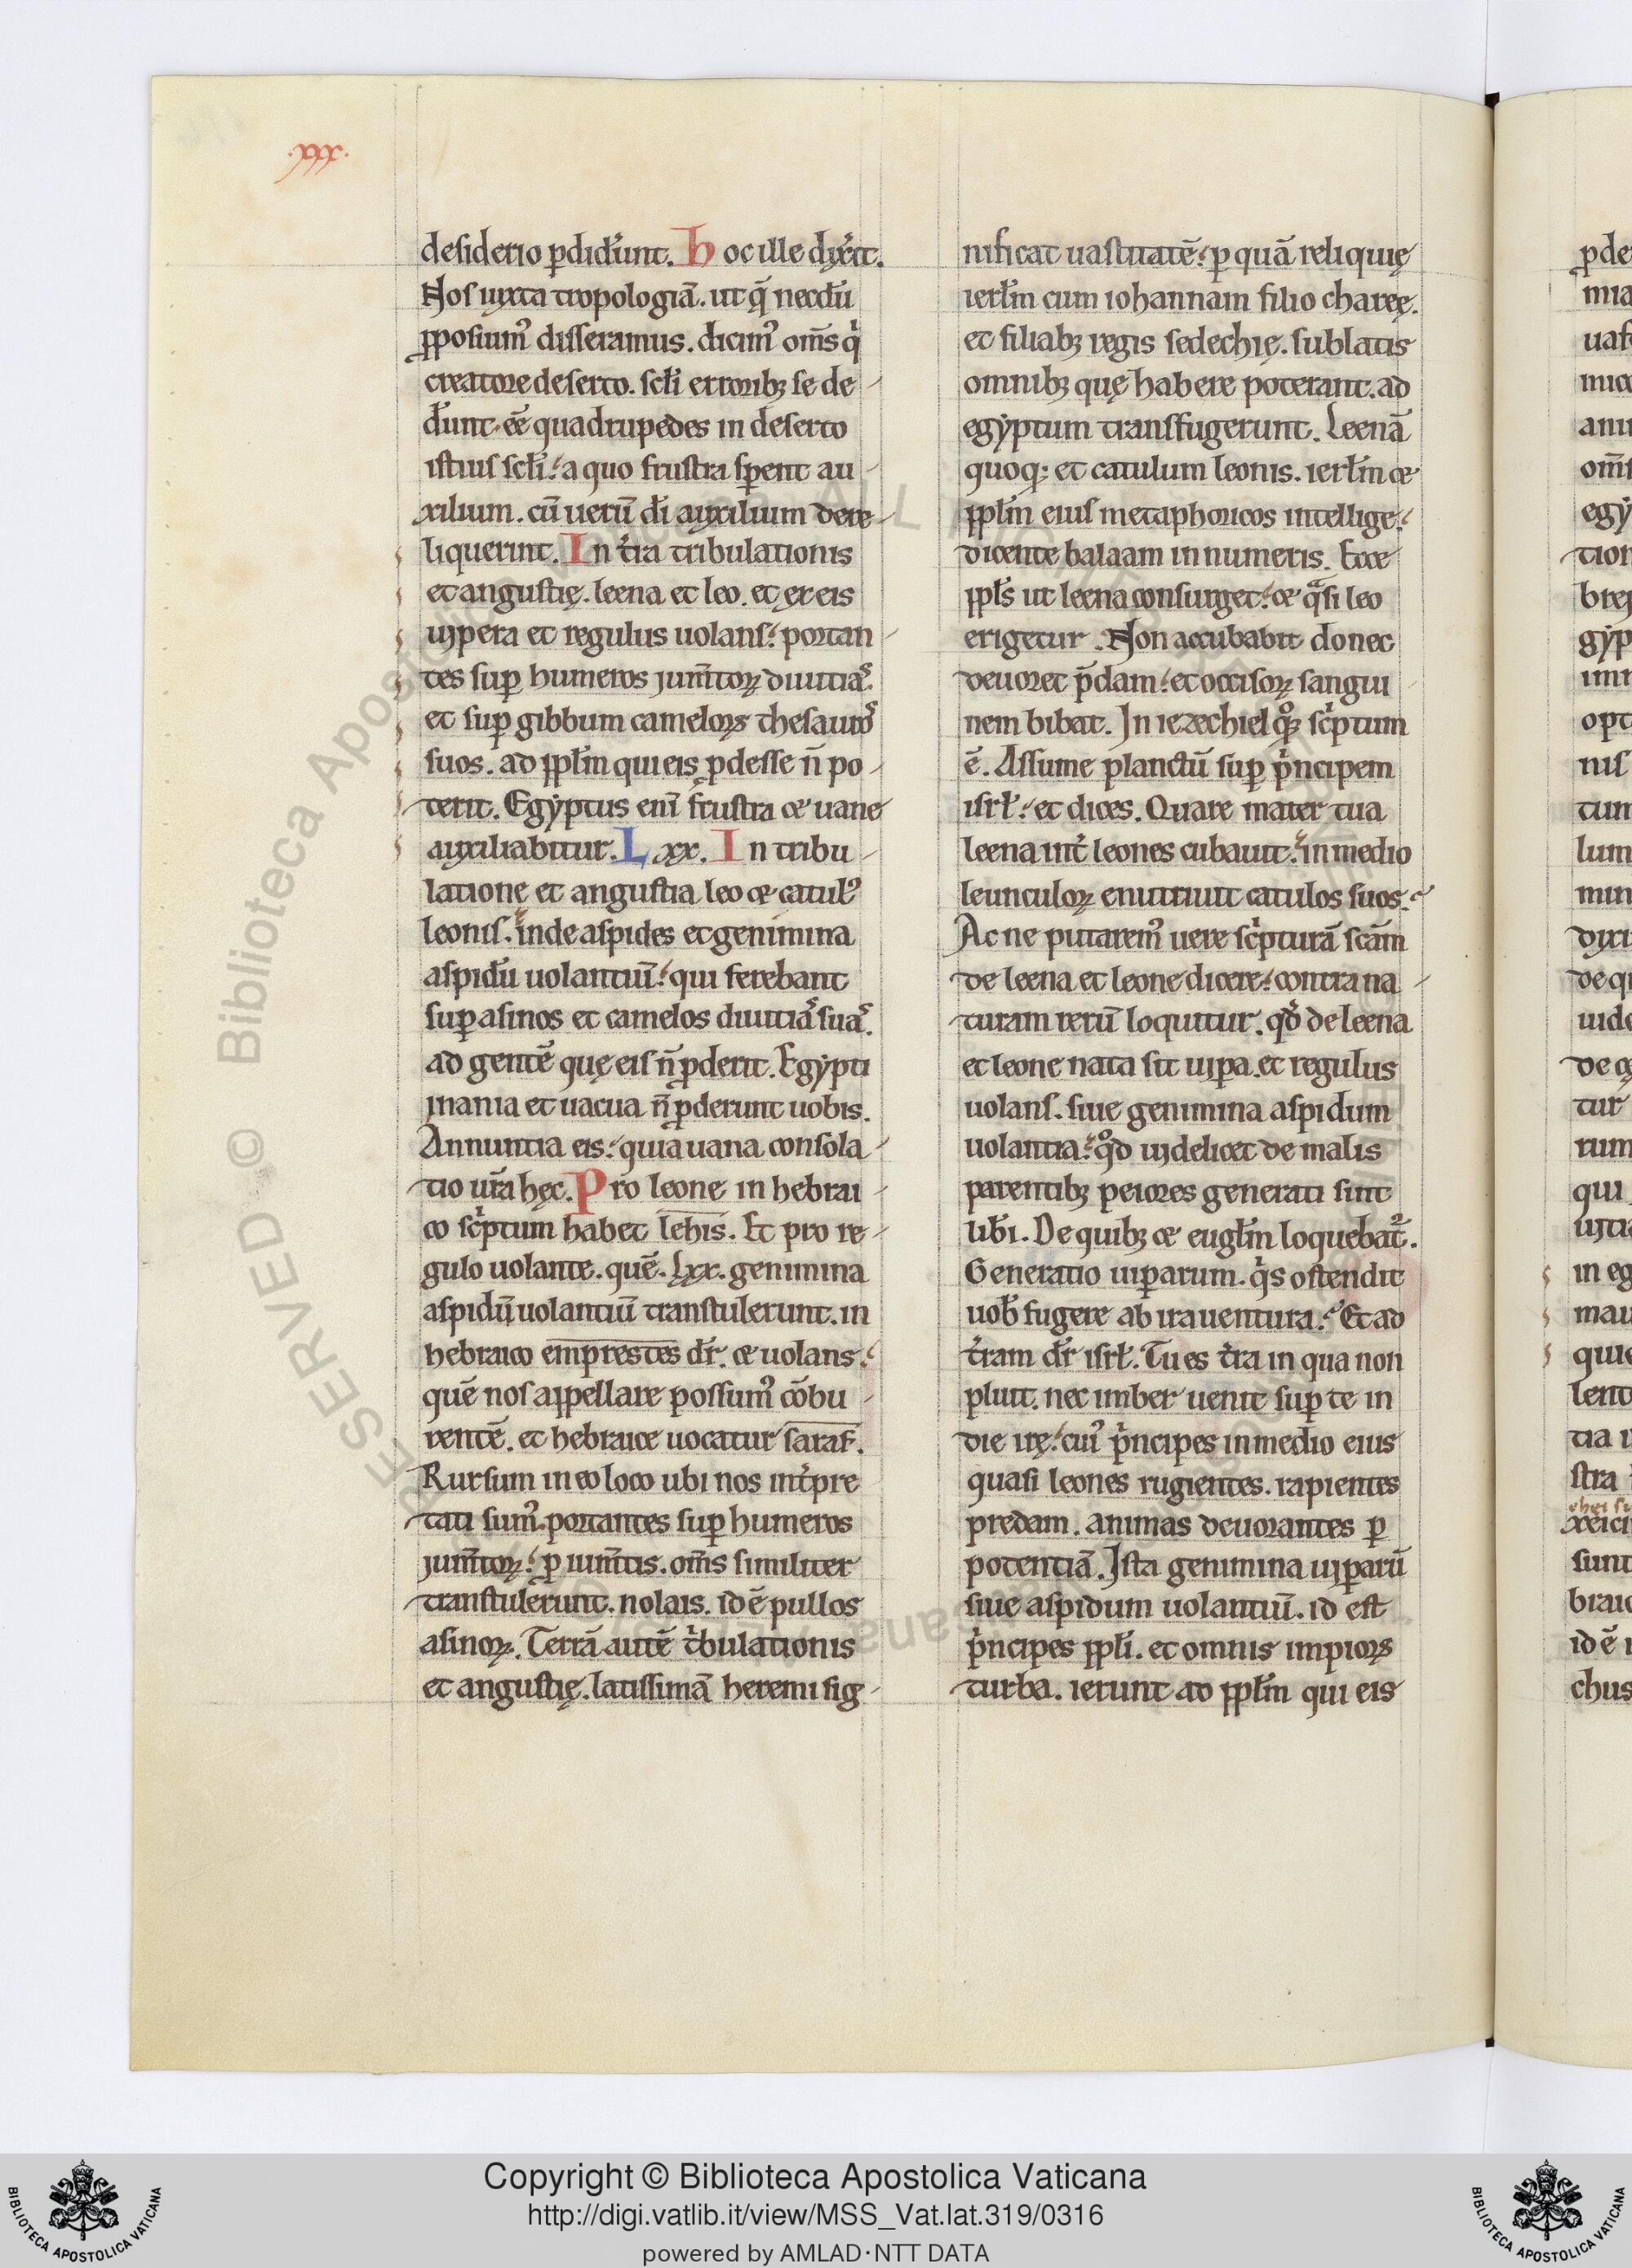 ·xxx·
desiderio ꝑdider̄unt. Hoc ille dixer̄it.
Nos iuxta tropologiā. ut q̄ necdū
ꝓposuimꝰ disseramus. dicimꝰ om̄s qͥ
creatore deserto. sc̄li erroribꝫ se de-
der̄unt. eē quadrupedes in deserto
istius sc̄li. a quo frustra sꝑent au-
xilium. cū uerū di auxilium dere-
liquerint. In t̄ra tribulationis
et angustię. leena et leo. et ex eis
uipera et regulus uolans. portan-
tes suꝑ humeros jum̄toꝝ diuitias.
et suꝑ gibbum cameloꝝ thesauros
suos. ad ppl̄m qui eis ꝓdesse n̄ po-
terit. Egẏptus enī frustra et uane
auxiliabitur. Lxx. In tribu-
latione et angustia leo et catulꝰ
leonis. inde aspides et genimina
aspidū uolantiū. qui ferebant
suꝑ asinos et camelos diuitias suas.
ad gentē quę eis n̄ ꝓderit. Egẏptii
inania et uacua n̄ ꝓderunt uobis.
Annuntia eis. quia uana consola-
tio ur̄a hęc. Pro leone in hebrai-
co sc̄ptum habet lehis. Et pro re-
gulo uolante. quē. Lxx. genimina
aspidū uolantiū transtulerunt. in
hebraico emprestes dr̄. et uolans.
quē nos appellare possumꝰ cōbu-
rentē. et hebraice uocatur saraf.
Rursum in eo loco ubi nos int̄pre
tati sumꝰ. portantes suꝑ humeros
jum̄toꝝ. ꝓ ium̄tis. om̄s similiter
transtulerunt. nolais. id ē pullos
asinoꝝ. Terrā autē tͥbulationis
et angustię. latissimā heremi sig-
nificat uastitatē. ꝑ quā reliquię
ierl̄m cum iohannam filio charęę.
et filiabꝫ regis sedechię. sublatis
omnibꝫ quę habere poterant. ad
egẏptum transfugerunt. Leenā
quoqꝫ et catulum leonis. ierl̄m et
ppl̄m eius metaphoricos intellige.
dicente balaam in numeris. Ecce
ppl̄s ut leena consurget. et qᵃsi leo
erigetur. Non accubabit donec
deuoret p̄dam. et occisoꝝ sangui
nem bibat. In iezechiel qͦqꝫ scͥptum
ē. Assume planctū suꝑ pͥncipem
isrl̄. et dices. Quare mater tua
leena int̄ leones cubauit. in medio
leunculoꝝ enutriuit catulos suos.
Ac ne putaremꝰ uere scͥpturā scām
de leena et leone dicere. contra na-
turam rerū loquitur. qd̄ de leena
et leone nata sit uiꝑa. et regulus
uolans. siue genimina aspidum
uolantia. qͦd uidelicet de malis
parentibꝫ peiores generati sint
lib̄i. De quibꝫ et eugl̄m loquebat᷑.
Generatio uiꝑarum. qͥs ostendit
uob̄ fugere ab ira uentura. Et ad
t̄ram dr̄ isrl̄. Tu es t̄ra in qua non
pluit. nec imber uenit suꝑ te in
die irę. cuiꝰ pͥncipes in medio eius
quasi leones rugientes. rapientes
predam. animas deuorantes ꝑ
potentiā. Ista genimina uiꝑarū
siue aspidum uolantiū. id est
pͥncipes ppl̄i. et omnis impioꝝ
turba. ierunt ad ppl̄m qui eis
Copyright © Biblioteca Apostolica Vaticana
http://digi.vatlib.it/view/MSS_Vat.lat.319/0316
powered by AMLAD·NTT DATA
BIBLIOTECA APOSTOLICA VATICANA
BIBLIOTECA APOSTOLICA VATICANA